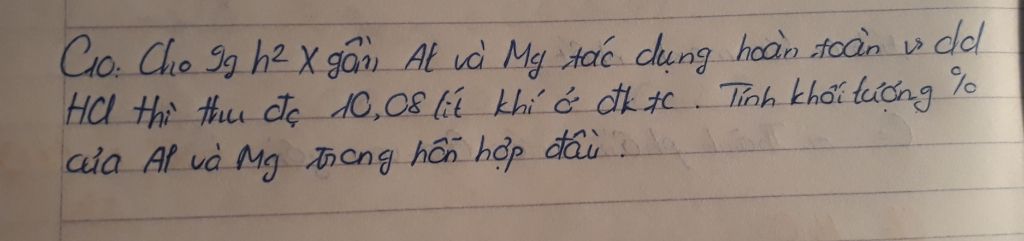 C10: Cho 9g h² X gồm Al và Mg tác dụng hoàn toàn vs dd
HCl thì thu đc 10,08 lít khí ở đktc. Tính khối lượng %
của Al và Mg trong hỗn hợp đầu.